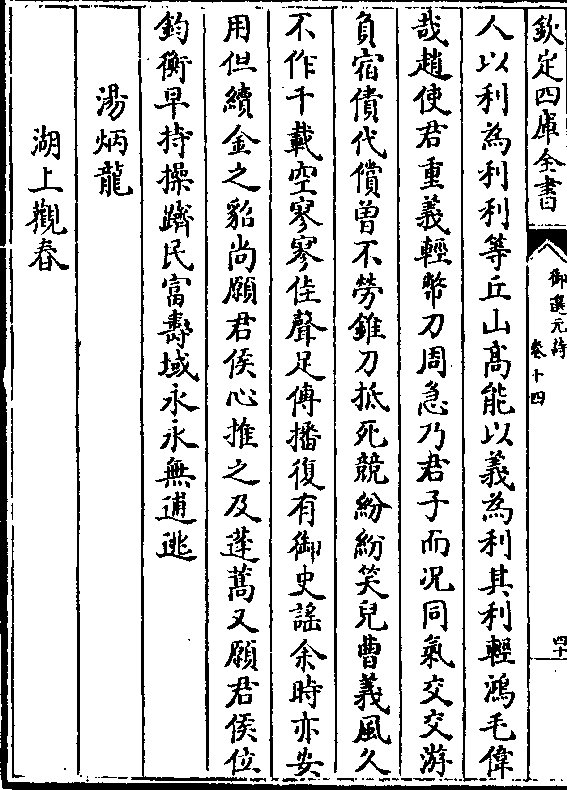 欽定四庫全書
御選元詩
卷十四
四十
人以利為利利等丘山髙能以義為利其利輕鴻毛偉
哉趙使君重義輕幣刀周急乃君子而况同氣交交游
負宿債代償曽不勞錐刀抵死競紛紛笑兒曹義風久
不作千載空寥寥佳聲足傳播復有御史謡余時亦安
用但續金之貂尚願君侯心推之及蓬蒿又願君侯位
鈞衡早持操躋民富壽域永永無逋逃
湯炳龍
湖上觀春